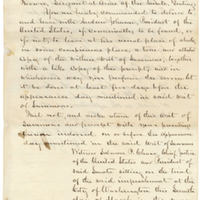 Brown, Sergeant at Arms of the Senate, Greeting
You are hereby commanded to deliver to
and leave with Andrew Johnson, President of the
United States, if conveniently to be found, or
if not, to leave at his usual place of abode,
in some conspicuous place, a true and attested
copy of the within writ of summons, together
with a like copy of this precept; and in
whichsoever way you perform the service let
it be done at least five days before the
appearance day mentioned in said writ
of summons.
Fail not, and make return of this writ of
summons and precept, with your proceedings
thereon indorsed, on or before the appearance
day mentioned in the said writ of summons
Witness Salmon P. Chase, Chief Justice
of the United States and President of
said Senate sitting on the trial
of the said impeachment at the
City of Washington this Seventh
day of March in the